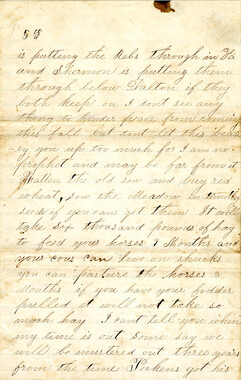 58
is putting the Rebs through in Va
and Shermon is putting them
through below Dalton if they
both keep on I dont see any
thing to hinder peace from coming
this fall but dont let this
ey you up too much for I am no
prophet and may be far from it
the old sow and buy red
wheat, sow the Meadow in timothy
seed if you can get them It will
take six thousand pounds of hay
to feed your horses 3 Months and
your cows can live on shucks
you can pasture the horses 3
Months if you have your fodder
pulled it will not take so
much hay I cant tell you when
my time is out Some say we
will be mustered out three years
from the time Pickens got his